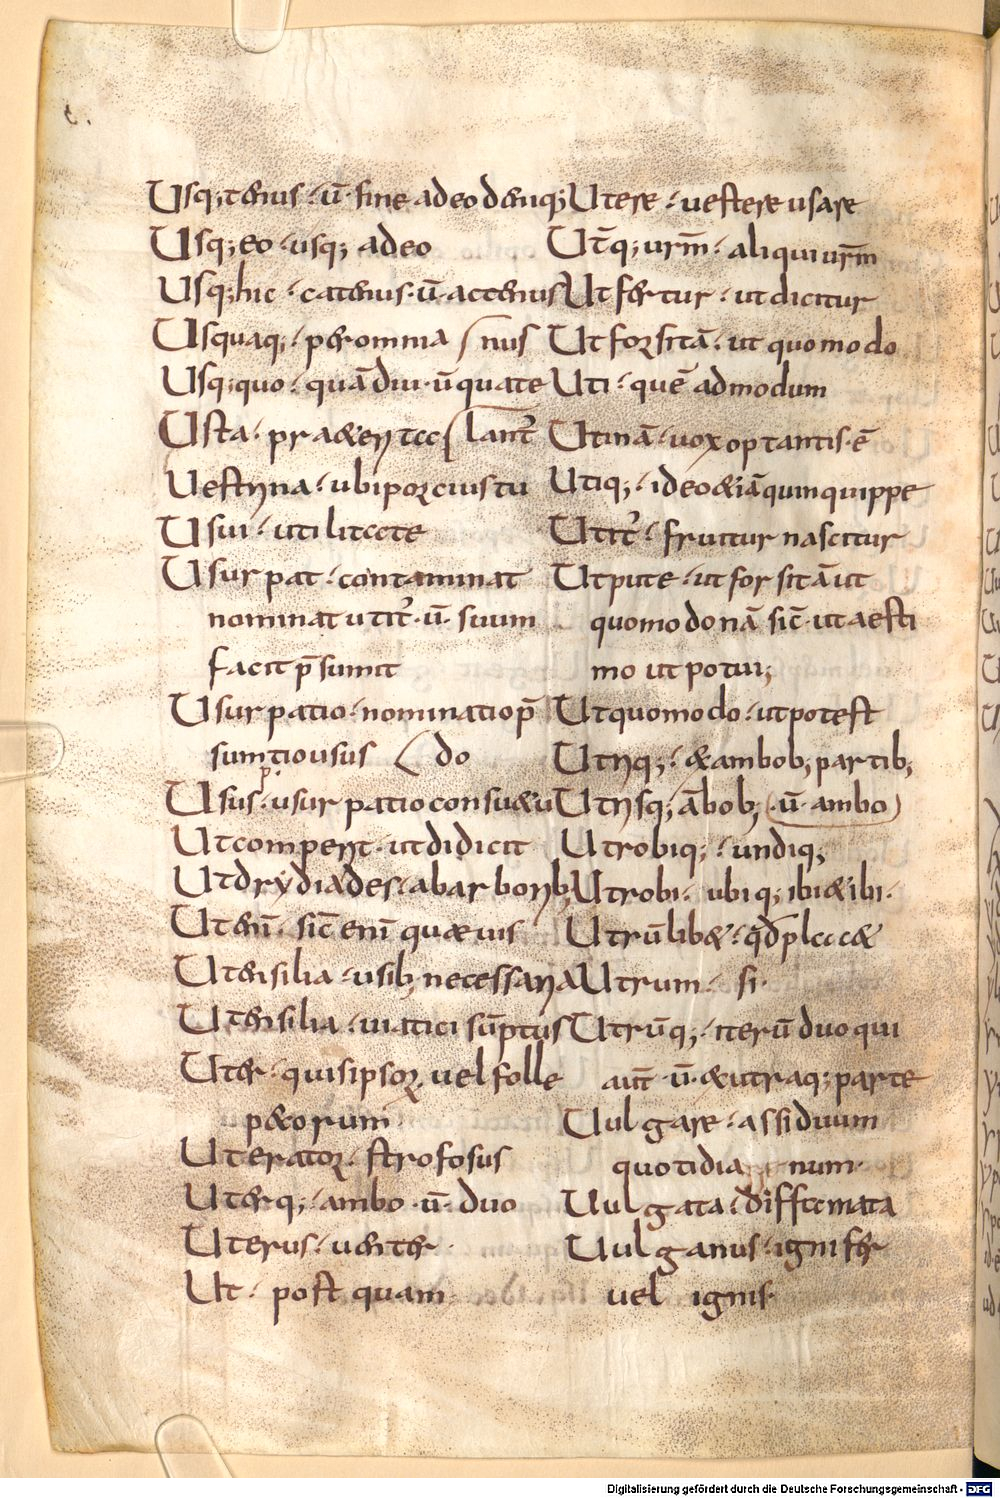 Usq;tenus· ū· fine adeo deniq;
Usq;eo· usq; adeo
Usq;hic· catenus· ū· actenus
Usquaq;· per omnia nus
Usq;quo· quādiu· ū quate
Usta· lant̄
Uestyna· ubi porcius tu
Usui· utilitate
Usurpat· contaminat
nominat utit̄· ū· suum
facit p̄sumit
Usurpatio· nominatio p̄
sumptio usus do
Usus· usurpatio consu&u
Utcomperit· ut didicit
Utdrydiades· ab arborib;
Utenī· sic̄ enī quæuis
Utensilia· usib; necessaria
Utensilia· uiatici sūptus
Uter· quis ipsoꝝ uel folle
p&orum
Uteratoꝝ· strofosus
Uterq;· ambo· ū· duo
Uterus· uenter·
Ut· postquam·
Utere· uestere usare
Ut̄q; urm̄· aliqui urm̄
Ut fertur· ut dicitur
Ut forsitā· ut quomodo
Uti· quē admodum
Utinā· uox optantis· ē
Utiq;· ideo &iā quin quippe
Utit̄· fruitur nascitur
Utpute· ut forsitā ut
quomodo nā sic̄· ut aesti
mo ut potui;
Utquomodo· ut potest
Utriq;· & ambob; partib;
Utrisq; ābob; ·ū· ambo
Utrobiq;· undiq;
Utrobi· ubiq; ibi & ibi·
Utrūlib&· qd̄ plac&
Utrum· si·
Utrūq;· iterū duo qui
aut̄ ū· & utraq; parte
Uulgare· assiduum
quotidianum·
Uulgata· diffamata
Uulganus· ignifer
uel ignis·
Digitalisierung gefördert durch die Deutsche Forschungsgemeinschaft - DFG